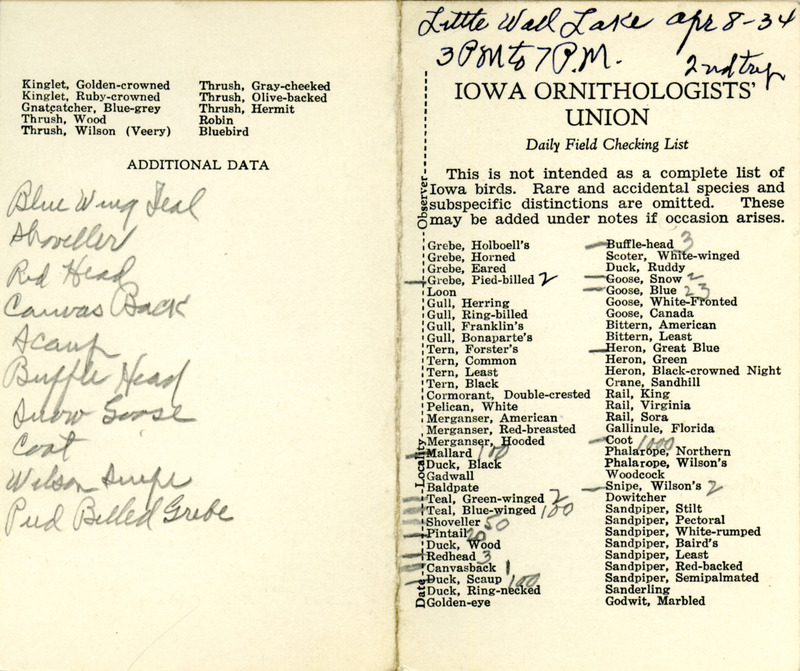 Kinglet, Golden-crowned
Kinglet, Ruby-crowned
Gnatcatcher, Blue-grey
Thrush, Wood
Thrush, Wilson (Veery)
Thrush, Gray-cheeked
Thrush, Olive-backed
Thrush, Hermit
Robin
Bluebird
ADDITIONAL DATA
Blue Wing Teal
Shoveller
Red Head
Canvas Back
Scaup
Buffle Head
Snow Goose
Coot
Wilson Snipe
Pied Billed Grebe
Little Wall Lake Apr 8-34
3 PM to 7 P.M.
2nd trip
IOWA ORNITHOLOGISTS'
UNION
Daily Field Checking List
This is not intended as a complete list of
Iowa birds. Rare and accidental species and
subspecific distinctions are omitted. These
may be added under notes if occasion arises.
Observer
Locality
Date
Grebe, Holboell's
Grebe, Horned
Grebe, Eared
Grebe, Pied-billed 2
Loon
Gull, Herring
Gull, Ring-billed
Gull, Franklin's
Gull, Bonaparte's
Tern, Forster's
Tern, Common
Tern, Least
Tern, Black
Cormorant, Double-crested
Pelican, White
Merganser, American
Merganser, Red-breasted
Merganser, Hooded
Mallard 100
Duck, Black
Gadwall
Baldpate
Teal, Green-winged 2
Teal, Blue-winged 100
Shoveller 50
Pintail 20
Duck, Wood
Redhead 3
Canvasback 1
Duck, Scaup 100
Duck, Ring-necked
Golden-eye
Buffle-head 3
Scoter, White-winged
Duck, Ruddy
Goose, Snow 2
Goose, Blue 23
Goose, White-Fronted
Goose, Canada
Bittern, American
Bittern, Least
Heron, Great Blue
Heron, Green
Heron, Black-crowned Night
Crane, Sandhill
Rail, King
Rail, Virginia
Rail, Sora
Gallinule, Florida
Coot 1000
Phalarope, Northern
Phalarope, Wilson's
Woodcock
Snipe, Wilson's 2
Dowitcher
Sandpiper, Stilt
Sandpiper, Pectoral
Sandpiper, White-rumped
Sandpiper, Baird's
Sandpiper, Least
Sandpiper, Red-backed
Sandpiper, Semipalmated
Sanderling
Godwit, Marbled